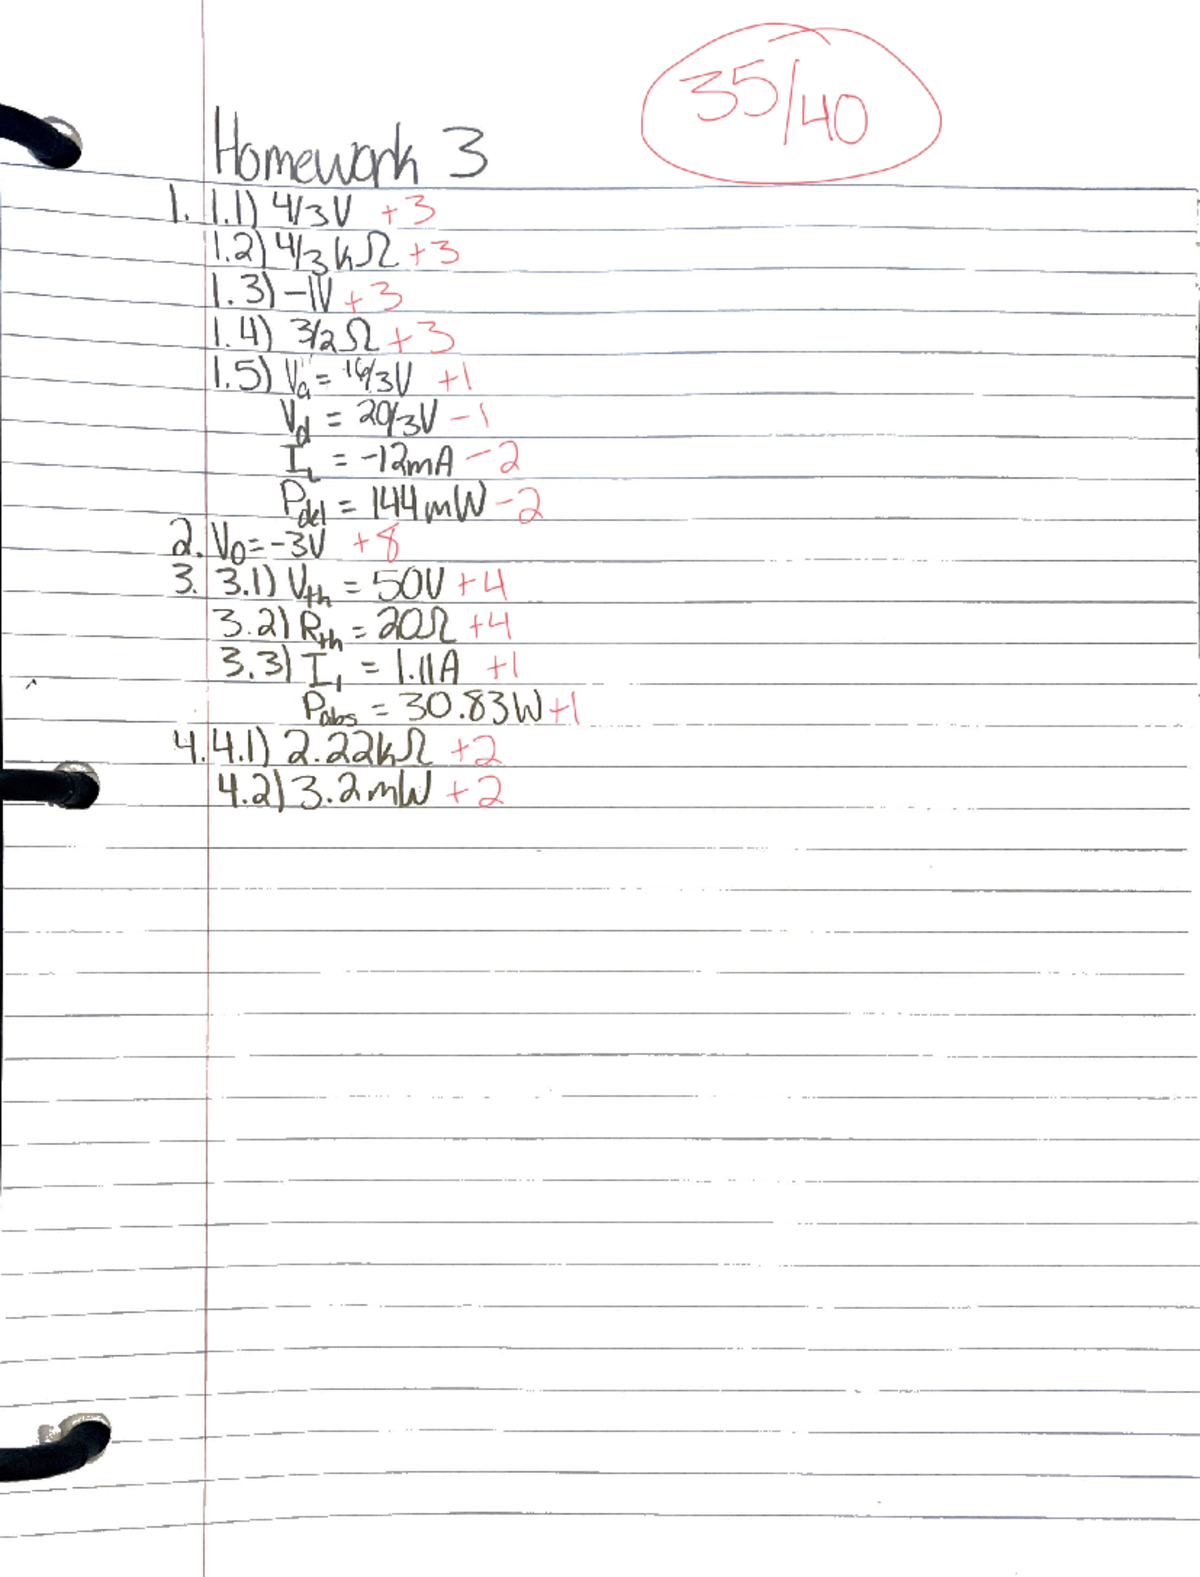 35/40
Homework 3
1. 1.1) 4/3V +3
1.2) 4/3 kΩ +3
1.3) -1V +3
1.4) 3/2Ω +3
1.5) Va = 16/3V +1
Vd = 20/3V -1
IL = -12mA -2
Pdel = 144mW -2
2. V0 = -3V +8
3. 3.1) Vth = 50V +4
3.2) Rth = 20Ω +4
3.3) I1 = 1.11A +1
Pabs = 30.83W +1
4. 4.1) 2.22kΩ +2
4.2) 3.2mW +2